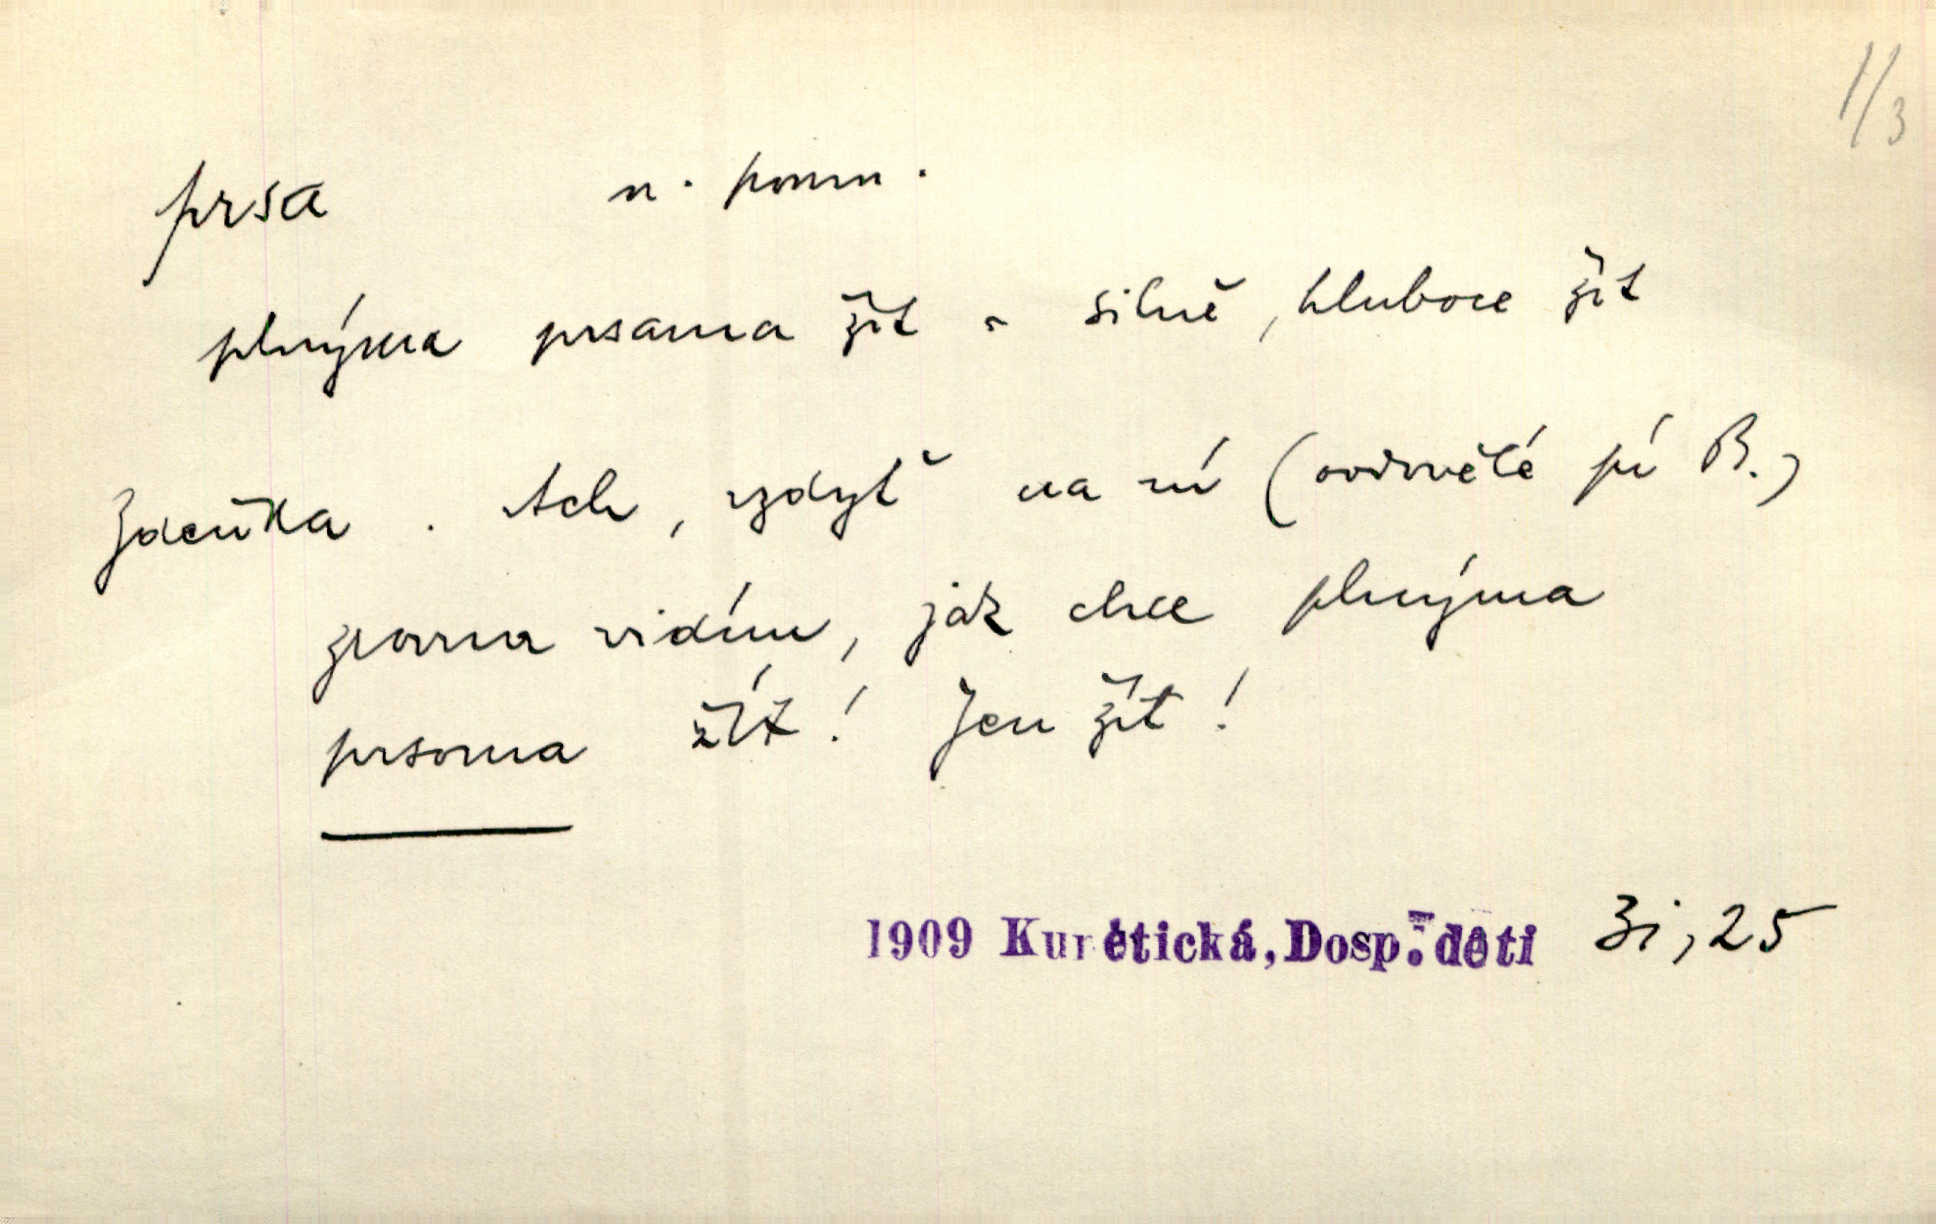 1/3
prsa n. pomn.
plnýma prsama žít = silně, hluboce žít
Zdeňka. Ach, vždyť na ní (ovdovělé pí B.)
zrovna vidím, jak chce plnýma
prsoma žít! Jen žít!
1909 Kurétická, Dosp. děti 3i, 25